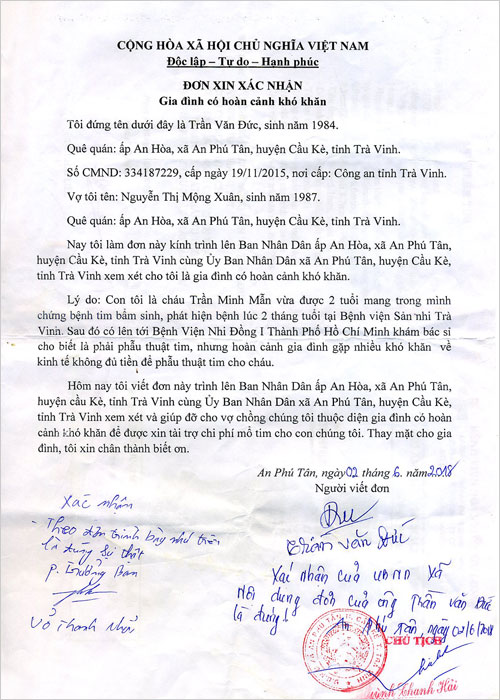 CỘNG HÒA XÃ HỘI CHỦ NGHĨA VIỆT NAM
Độc lập – Tự do – Hạnh phúc
ĐƠN XIN XÁC NHẬN
Gia đình có hoàn cảnh khó khăn
Tôi đứng tên dưới đây là Trần Văn Đức, sinh năm 1984.
Quê quán: ấp An Hòa, xã An Phú Tân, huyện Cầu Kè, tỉnh Trà Vinh.
Số CMND: 334187229, cấp ngày 19/11/2015, nơi cấp: Công an tỉnh Trà Vinh.
Vợ tôi tên: Nguyễn Thị Mộng Xuân, sinh năm 1987.
Quê quán: ấp An Hòa, xã An Phú Tân, huyện Cầu Kè, tỉnh Trà Vinh.
Nay tôi làm đơn này kính trình lên Ban Nhân Dân ấp An Hòa, xã An Phú Tân,
huyện Cầu Kè, tỉnh Trà Vinh cùng Ủy Ban Nhân Dân xã An Phú Tân, huyện Cầu Kè,
tỉnh Trà Vinh xem xét cho tôi là gia đình có hoàn cảnh khó khăn.
Lý do: Con tôi là cháu Trần Minh Mẫn vừa được 2 tuổi mang trong mình
chứng bệnh tim bẩm sinh, phát hiện bệnh lúc 2 tháng tuổi tại Bệnh viện Sản nhi Trà
Vinh. Sau đó có lên tới Bệnh Viện Nhi Đồng I Thành Phố Hồ Chí Minh khám bác sĩ
cho biết là phải phẫu thuật tim, nhưng hoàn cảnh gia đình gặp nhiều khó khăn về
kinh tế không đủ tiền để phẫu thuật tim cho cháu.
Hôm nay tôi viết đơn này trình lên Ban Nhân Dân ấp An Hòa, xã An Phú Tân,
huyện cầu Kè, tỉnh Trà Vinh cùng Ủy Ban Nhân Dân xã An Phú Tân, huyện Cầu Kè,
tỉnh Trà Vinh xem xét và giúp đỡ cho vợ chồng chúng tôi thuộc diện gia đình có hoàn
cảnh khó khăn để được xin tài trợ chi phí mổ tim cho con chúng tôi. Thay mặt cho gia
đình, tôi xin chân thành biết ơn.
An Phú Tân, ngày 02 tháng 6. năm 2018
Người viết đơn
Trần Văn Đức
Xác nhận
- Theo đơn trình bày như trên
là đúng sự thật
P. Trưởng Ban
Võ Thanh
Xác nhận của UBND xã
Nội dung đơn của ông Trần Văn Đức
là đúng!
An Phú Tân, ngày 02/6/2018
CHỦ TỊCH
Thanh Hải